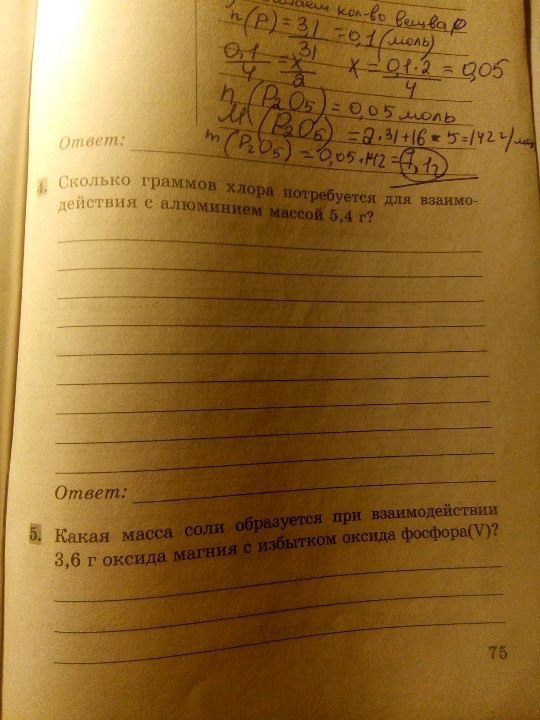 кол-во
n(P) = 3,1/31 = 0,1 (моль)
0,1/4 = x/2 x = 0,1·2/4 = 0,05
n(P₂O₅) = 0,05 моль
M(P₂O₅) = 2·31+16·5=142 г/моль
Ответ: m(P₂O₅) = 0,05·142=7,1г
4. Сколько граммов хлора потребуется для взаимо-
действия с алюминием массой 5,4 г?
Ответ:
5. Какая масса соли образуется при взаимодействии
3,6 г оксида магния с избытком оксида фосфора(V)?
75